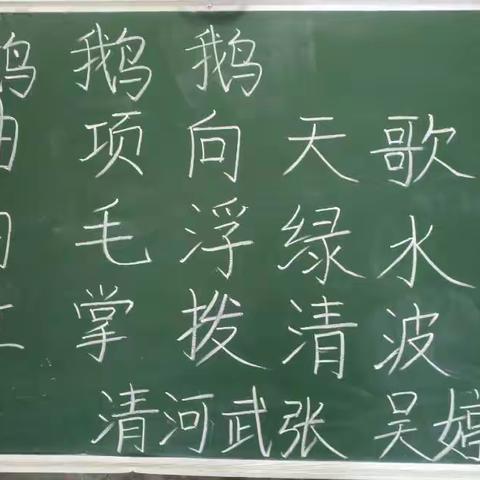 鹅鹅鹅
曲项向天歌
白毛浮绿水
红掌拨清波
清河武张 吴婷